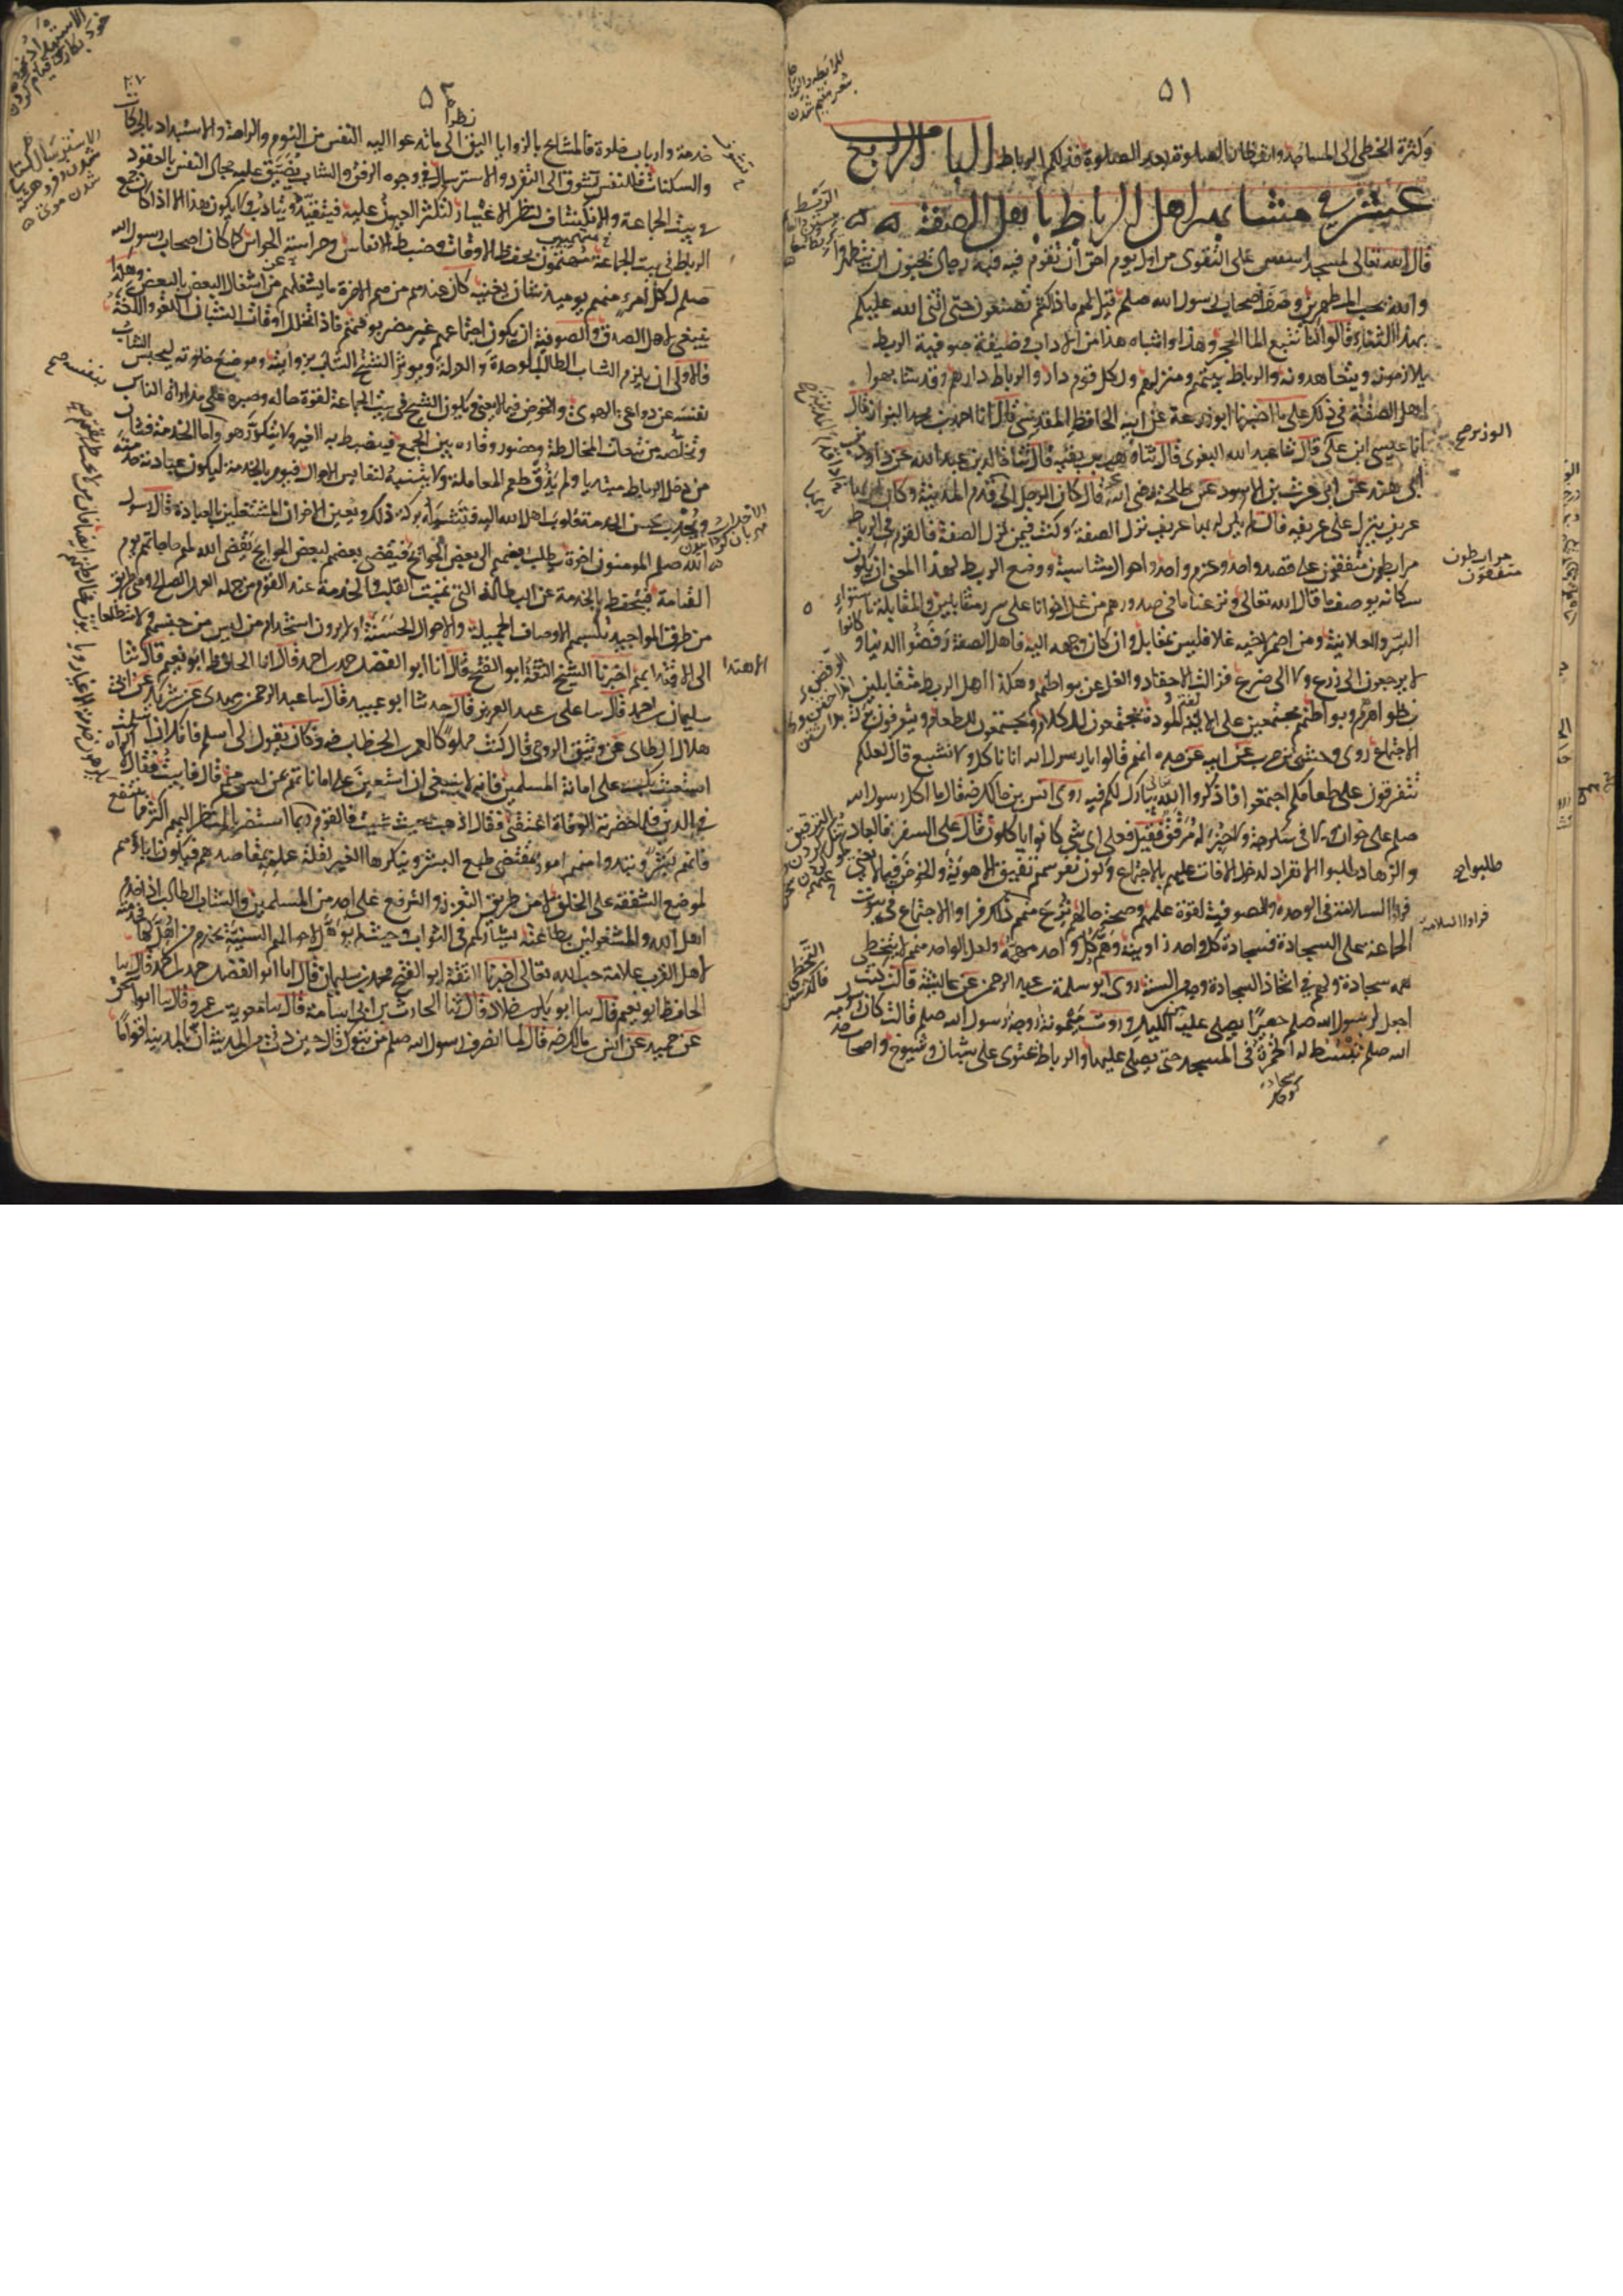 ٥١
وكثرة الخطى الى المساجد وانتظار الصلوة بعد الصلوة فذلكم الرباط الباب الرابع
عشر في مشابهة اهل الرباط باهل الصفة
قال الله تعالى لمسجد اسس على التقوى من اول يوم احق ان تقوم فيه فيه رجال يحبون ان يتطهروا
والله يحب المطهرين وصف اصحاب رسول الله صلعم قيل لهم ماذا كنتم تصنعون حتى اثنى الله عليكم
بهذا الثناء قالوا كنا نتبع الماء الحجر وهذا واشباه هذا من الاداب وظيفة صوفية الربط
يلازمونه ويتعاهدونه والرباط بيتهم ومنزلهم ولكل قوم دار والرباط دارهم وقد شابهوا
اهل الصفة في ذلك على ما اخبرنا ابو زرعة عن ابيه الحافظ المقدسي قال انا احمد بن محمد البزاز قال
انا عيسى ابن علي قال ثنا عبد الله البغوي قال ثنا وهب بن بقية قال ثنا خالد بن عبد الله عن داود بن
ابي هند عن ابي حرب بن الاسود عن طلحة رضي الله عنه قال كان الرجل اذا قدم المدينة وكان له بها
عريف ينزل على عريفه فان لم يكن له بها عريف نزل الصفة وكنت فيمن نزل الصفة فالقوم في الرباط
مرابطون متفقون على قصد واحد وعزم واحد واحوال متناسبة ووضع الربط لهذا المعنى ان يكون
سكانه بوصف ما قال الله تعالى ونزعنا ما في صدورهم من غل اخوانا على سرر متقابلين والمقابلة باستواء
السر والعلانية ومن اضمر لاخيه غلا فليس بمقابل وان كان وجهه اليه فاهل الصفة كانوا رفضوا الدنيا و
لا يرجعون الى زرع ولا الى ضرع فزالت الاحقاد والغل عن بواطنهم وهكذا اهل الربط متقابلين
بظواهرهم وبواطنهم مجتمعين على الالفة والمودة يجتمعون للكلام ويجتمعون للطعام ويتعرفون بركة
الاجتماع روى وحشي بن حرب عن ابيه عن جده انهم قالوا يا رسول الله انا ناكل ولا نشبع قال لعلكم
تتفرقون على طعامكم اجتمعوا واذكروا الله تعالى يبارك لكم فيه روى انس بن مالك رض قال ما اكل رسول الله
صلعم على خوان ولا في سكرجة ولا خبز له مرقق فقيل فعلى اي شي كانوا ياكلون قال على السفر فالعباد
والزهاد طلبوا الانفراد لدخول الافات عليهم بالاجتماع وكون نفوسهم تفتيق للاهوية والخوض فيما لا يعني
فراوا السلامة في الوحدة والصوفية لقوة علمهم وصحة حالهم نزع منهم ذلك فراوا الاجتماع في بيوت
الجماعة على السجادة فسجادة كل واحد زاويته وهم كل واحد مهمه ولعل الواحد منهم لا يتخطى
همه سجادته ولهم في اتخاذ السجادة وجه من السنة روى ابو سلمة بن عبد الرحمن عن عائشة قالت كنت
اجعل لرسول الله صلعم حصيرا يصلي عليه من الليل وروت ميمونة زوجة رسول الله صلعم قالت كان رسول
الله صلعم تبسط له الخمرة في المسجد حتى يصلي عليها والرباط يحتوي على شبان وشيوخ واصحاب
الوزير صح
مرابطون
متفقون
طلبوا صح
فراوا السلامة
٥٢
خدمة وارباب خلوة فالمشايخ بالزوايا اليق نظرا الى ما تدعوا اليه النفس من النوم والراحة والاستبداد بالحركات
والسكنات فللنفس تشوق الى التفرد والاسترسال في وجوه الرفق والشاب يضيق عليه مجال النفس بالقعود
في بيت الجماعة والانكشاف لنظر الاغيار لتكثر العيون عليه فيتقيد ويتادب ولا يكون هذا الا اذا كان جمع
الربط في بيت الجماعة مهتمون بحفظ الاوقات وضبط الانفاس وحراسة الحواس كما كان اصحاب رسول الله
صلعم لكل امرئ منهم يومئذ شان يغنيه كان عندهم من هم الاخرة ما يشغلهم عن اشتغال البعض بالبعض وهكذا
ينبغي لاهل الصدق والصوفية ان يكون اجتماعهم غير مضر بوقتهم فاذا تخلل اوقات الشبان اللغو واللغط
فالاولى ان يلزم الشاب الطالب الوحدة والعزلة ويوثر الشيخ الشاب بزاويته وموضع خلوته ليحبس الشاب
نفسه عن دواعي الهوى والخوض فيما لا يعني ويكون الشيخ في بيت الجماعة لقوة حاله وصبره على مداراة الناس
وتخلصه من تبعات المخالطة وحضور وقاره بين الجمع فينضبط به الغير ولا يتكدر هو واما الخدمة فشان
من دخل الرباط مبتديا ولم يذق طعم المعاملة ولا يتنبه لنفايس الاحوال فيومر بالخدمة ليكون عبادته خدمته
ويجذب بحسن الخدمة قلوب اهل الله اليه فتشمله بركة ذلك ويعين الاخوان المشتغلين بالعبادة قال رسول
الله صلعم المومنون اخوة يطلب بعضهم الى بعض الحوائج فيقضي بعضهم لبعض الحوايج يقضي الله لهم حاجاتهم يوم
القيامة فيحتفظ بالخدمة عن البطالة التي تميت القلب والخدمة عند القوم من جملة العمل الصالح وهي طريق
من طرق المواجيد تكسبهم الاوصاف الجميلة والاحوال الحسنة ولا يرون استخدام من ليس من جنسهم ولا متطلعا
الى الاهتداء بهم اخبرنا الشيخ الثقة ابو الفتح قال انا ابو الفضل حمد بن احمد قال انا الحافظ ابو نعيم قال ثنا
سليمان بن احمد قال ثنا علي بن عبد العزيز قال حدثنا ابو عبيد قال ثنا عبد الرحمن بن مهدي عن شريك عن ابي
هلال الطائي عن وثيق الرومي قال كنت مملوكا لعمر بن الخطاب رض وكان يقول لي اسلم فانك ان اسلمت
استعنت بك على امانة المسلمين فانه لا ينبغي ان استعين على امانتهم بمن ليس منهم قال فابيت فقال لا اكراه
في الدين فلما حضرته الوفاة اعتقني فقال اذهب حيث شيت فالقوم
فانهم بشر وتبدو منهم امور بمقتضى طبع البشر وينكرها الغير لقلة علمه بمقاصدهم فيكون اباؤهم
لموضع الشفقة على الخلق لا من طريق التعزز والترفع على احد من المسلمين والشاب الطالب اذا خدم
اهل الله والمشغولين بطاعته يشاركهم في الثواب وحيث لم يوهل لاحوالهم السنية يخدم من اهل لها فخدمته
لاهل القرب علامة حب الله تعالى اخبرنا الثقة ابو الفتح محمد بن سليمان قال انا ابو الفضل حمد بن احمد قال ثنا
الحافظ ابو نعيم قال ثنا ابو بكر بن خلاد قال ثنا الحارث بن ابي اسامة قال ثنا معوية بن عمرو قال ثنا ابو اسحق
عن حميد عن انس بن مالك رض قال لما انصرف رسول الله صلعم من تبوك قال حين دنى من المدينة ان بالمدينة اقواما